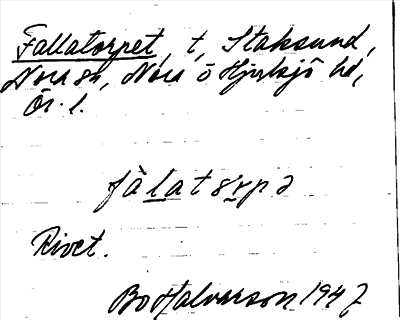 Fallatorpet, t, Staksund,
Nora sn, Nora o Hjulsjö hd,
Ör. l.
fàlatårpə
Rivet.
Bo Halvarson 1947